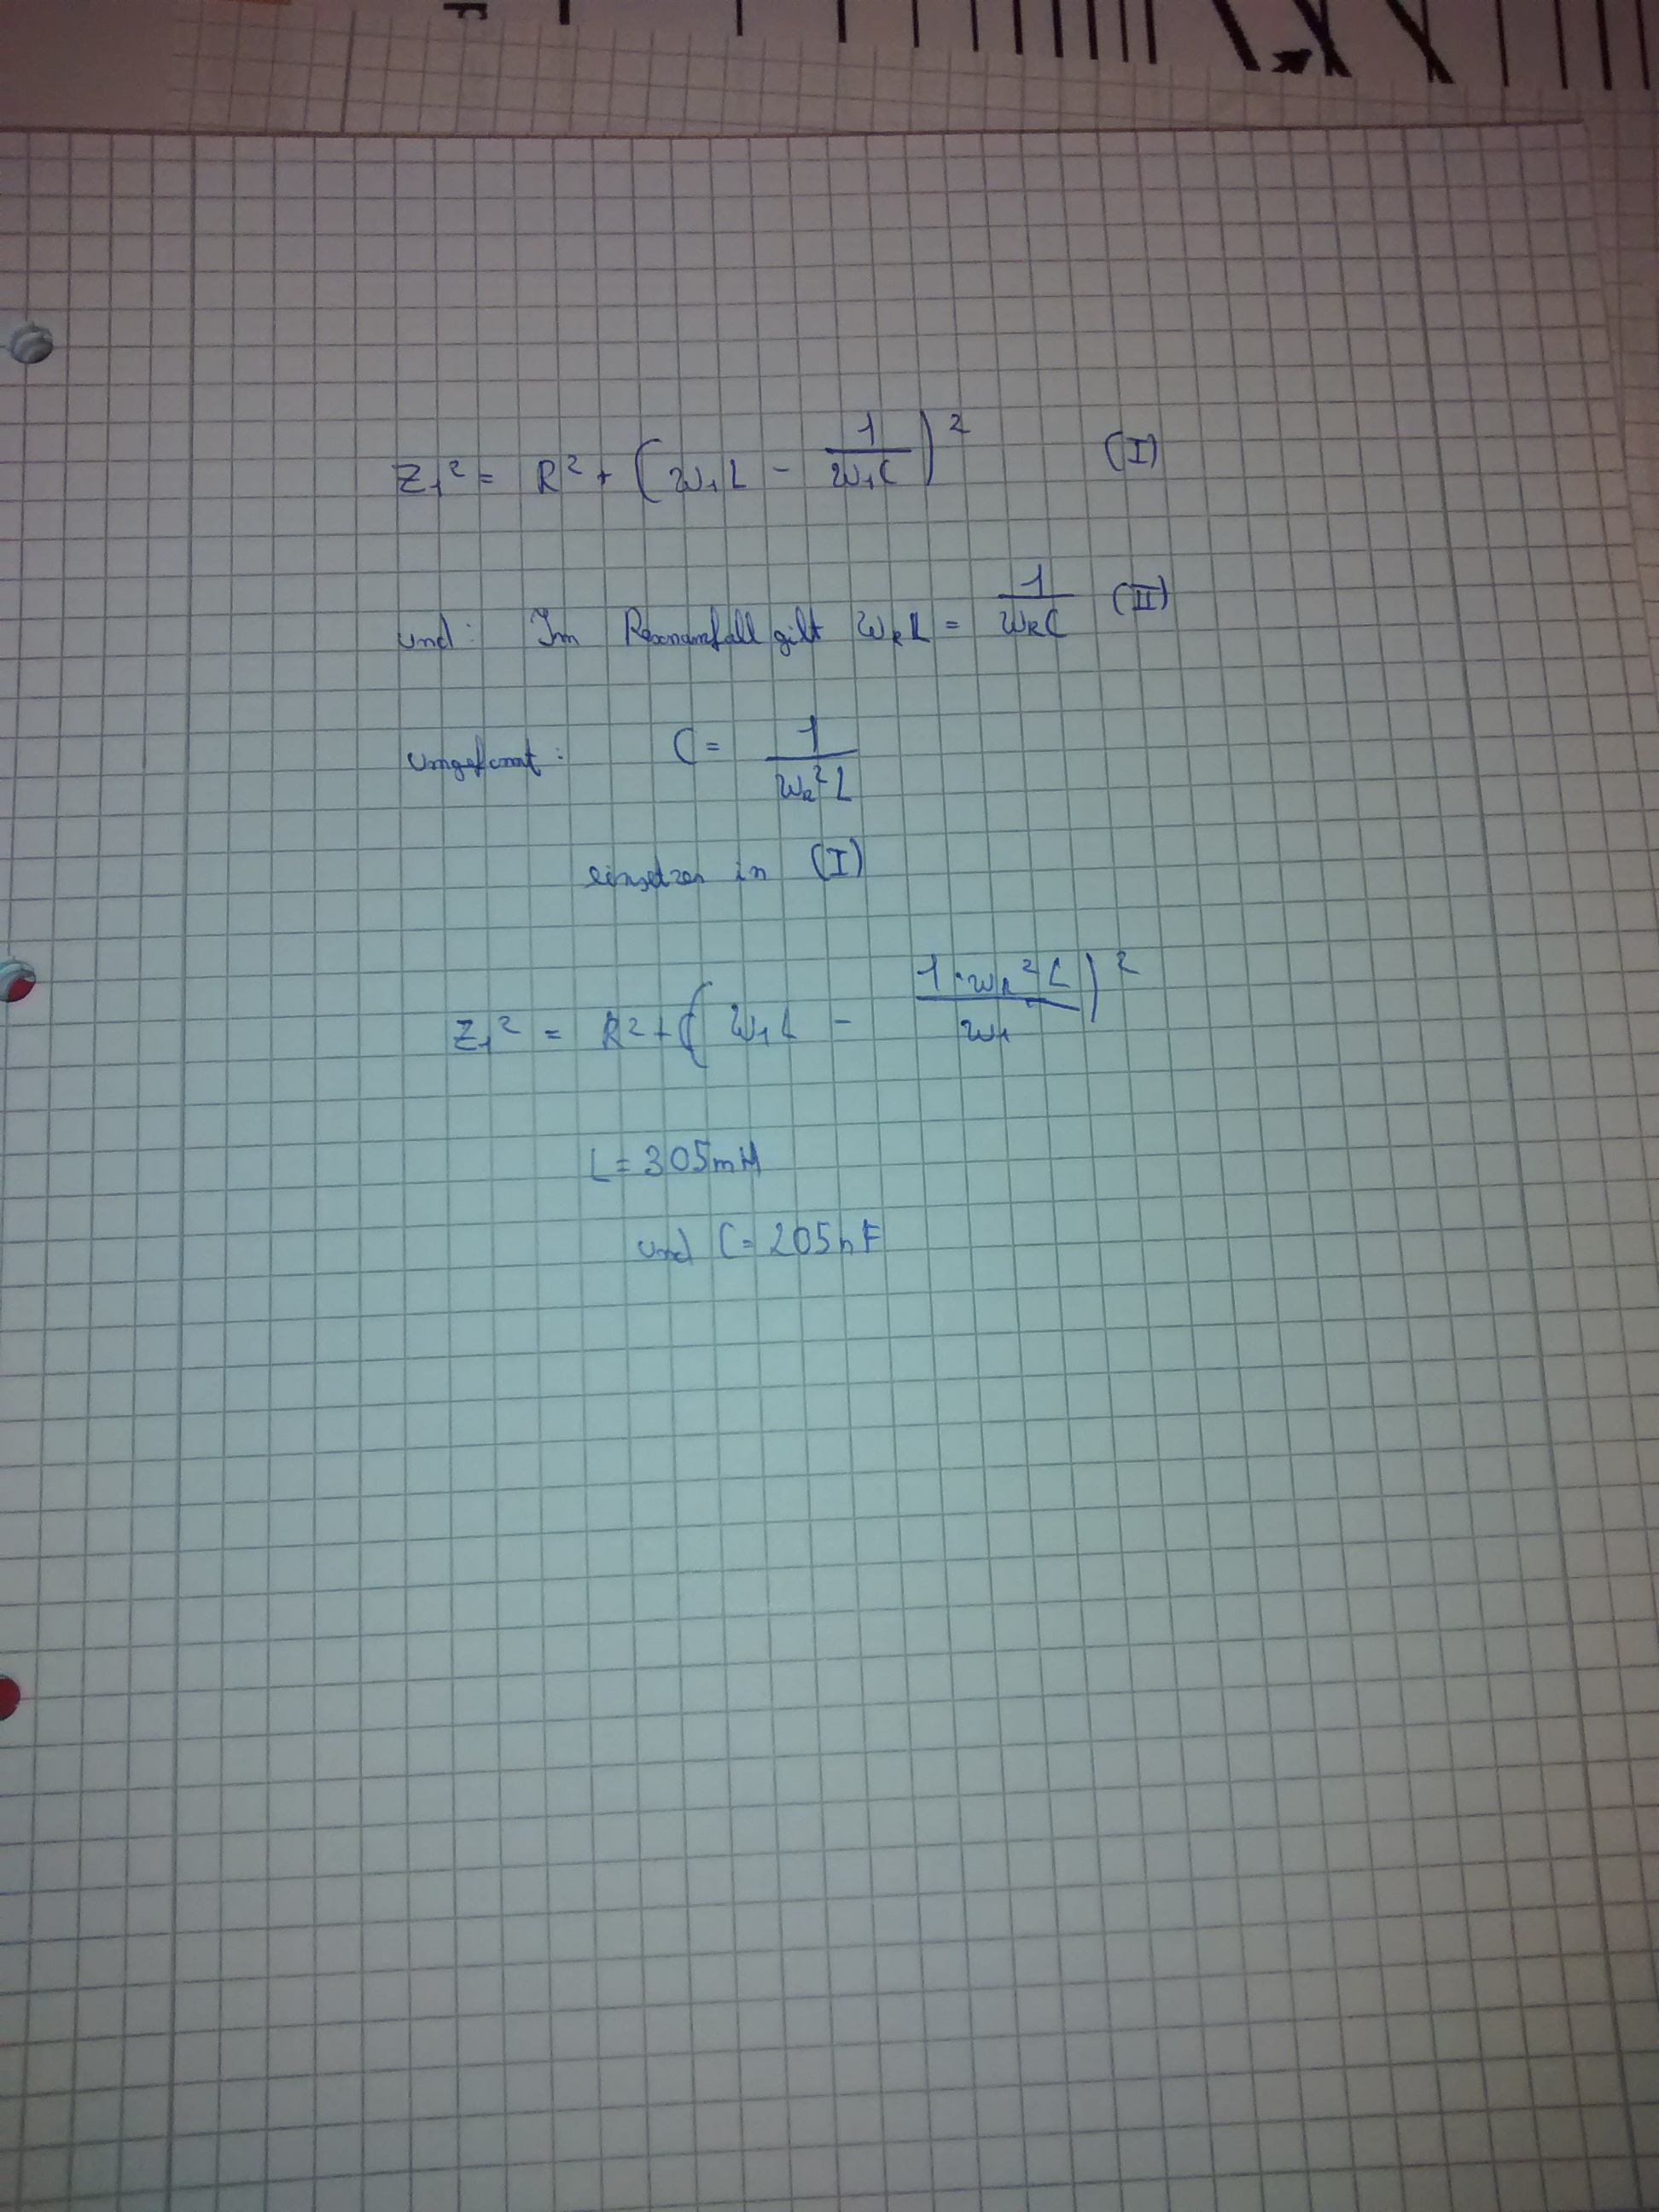 Z₁² = R² + (ω₁L - 1/(ω₁C))² (I)
und: Im Resonanzfall gilt ω_R L = 1/(ω_R C) (II)
umgeformt: C = 1/(ω_R² L)
einsetzen in (I)
Z₁² = R² + (ω₁L - (1·ω_R² L)/ω₁)²
L = 305mH
und C = 205nF